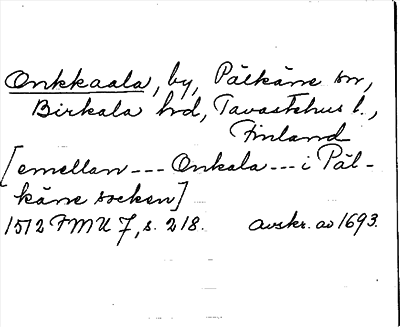 Onkkaala, by, Pälkäne sn,
Birkala hd, Tavastehus l.,
Finland
[emellan --- Onkala --- i Päl-
käne socken]
1512 FMU 7, s. 218. Avskr. av 1693.